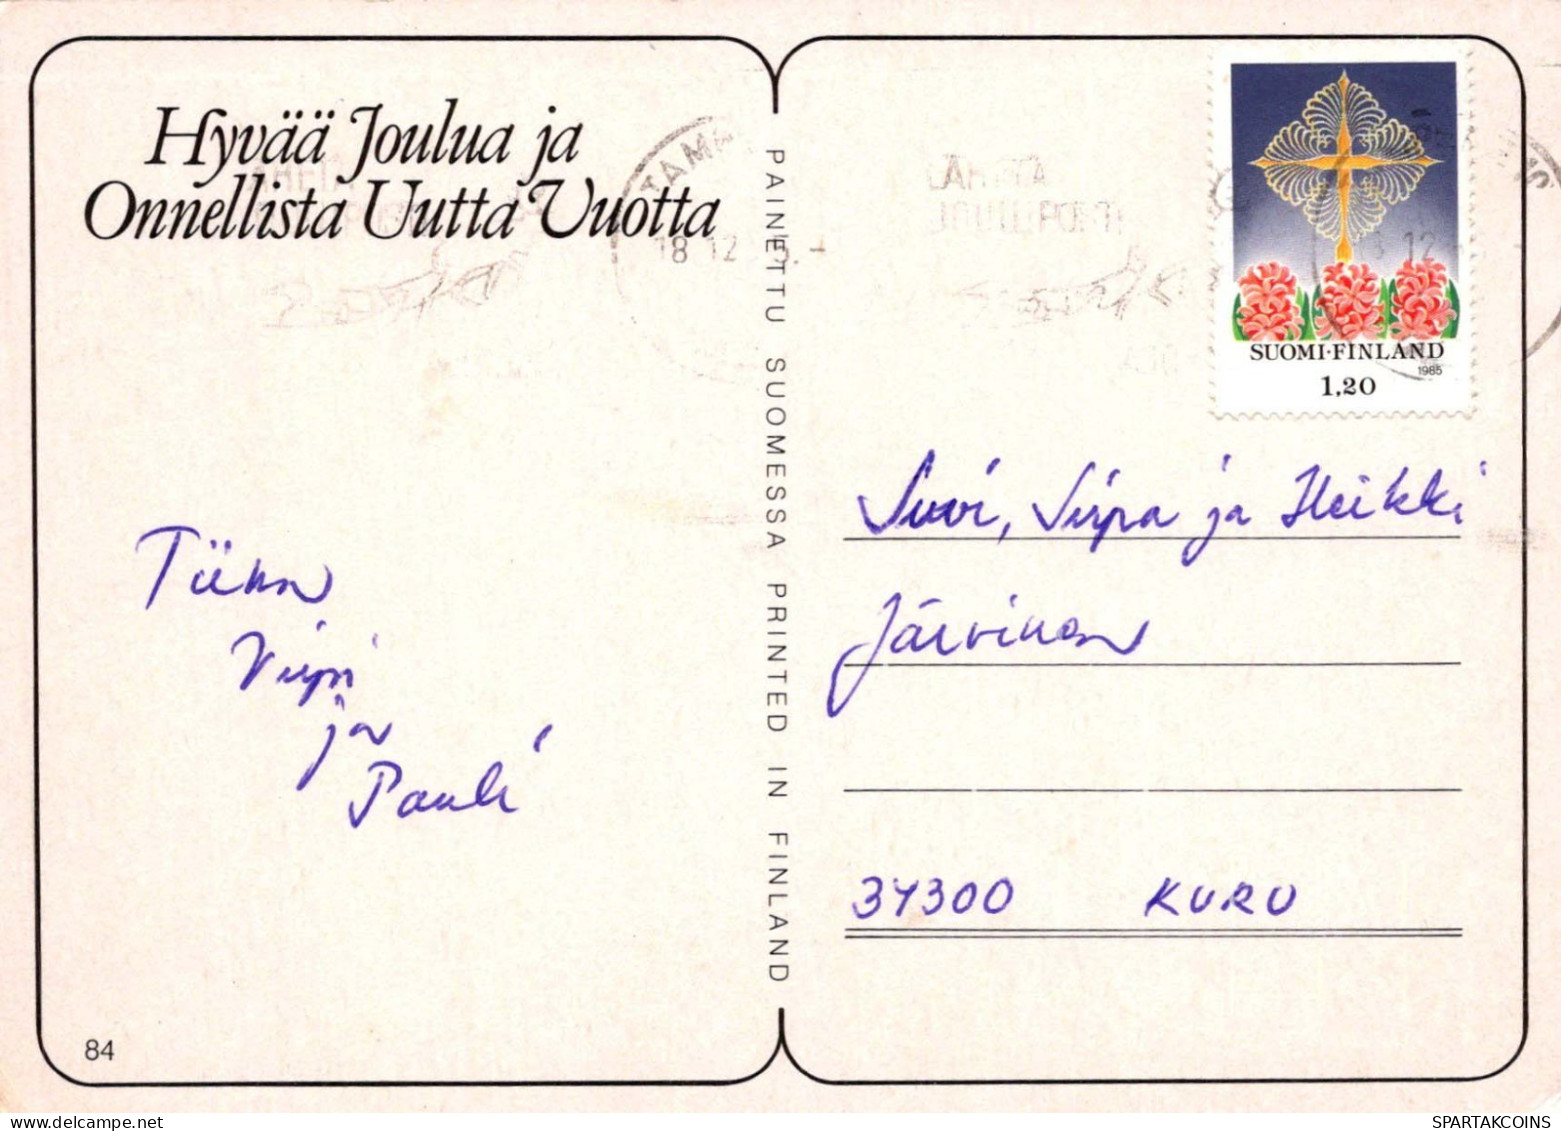 Hyvää Joulua ja
Onnellista Uutta Vuotta
TAMP
18 12
PAINETTU SUOMESSA PRINTED IN FINLAND
LÄHETÄ
12
SUOMI·FINLAND
1985
1,20
Suvi, Sirpa ja Heikki
Järvinen
34300 KURU
Virpi
ja
Pauli
84
SPARTAKCOINS